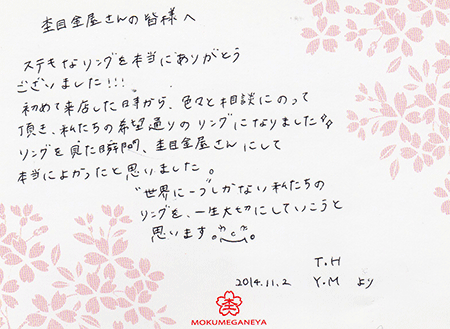 杢目金屋さんの皆様へ
ステキなリングを本当にありがとう
ございました!!!
初めて来店した日時から、色々と相談にのって
頂き、私たちの希望通りのリングになりました
リングを見た瞬間、杢目金屋さんにして
本当によかったと思いました。
"世界に一つしかない私たちの
リングを、一生大切にしていこうと
思います。
T.H
2014.11.2 Y.M より
MOKUMEGANEYA